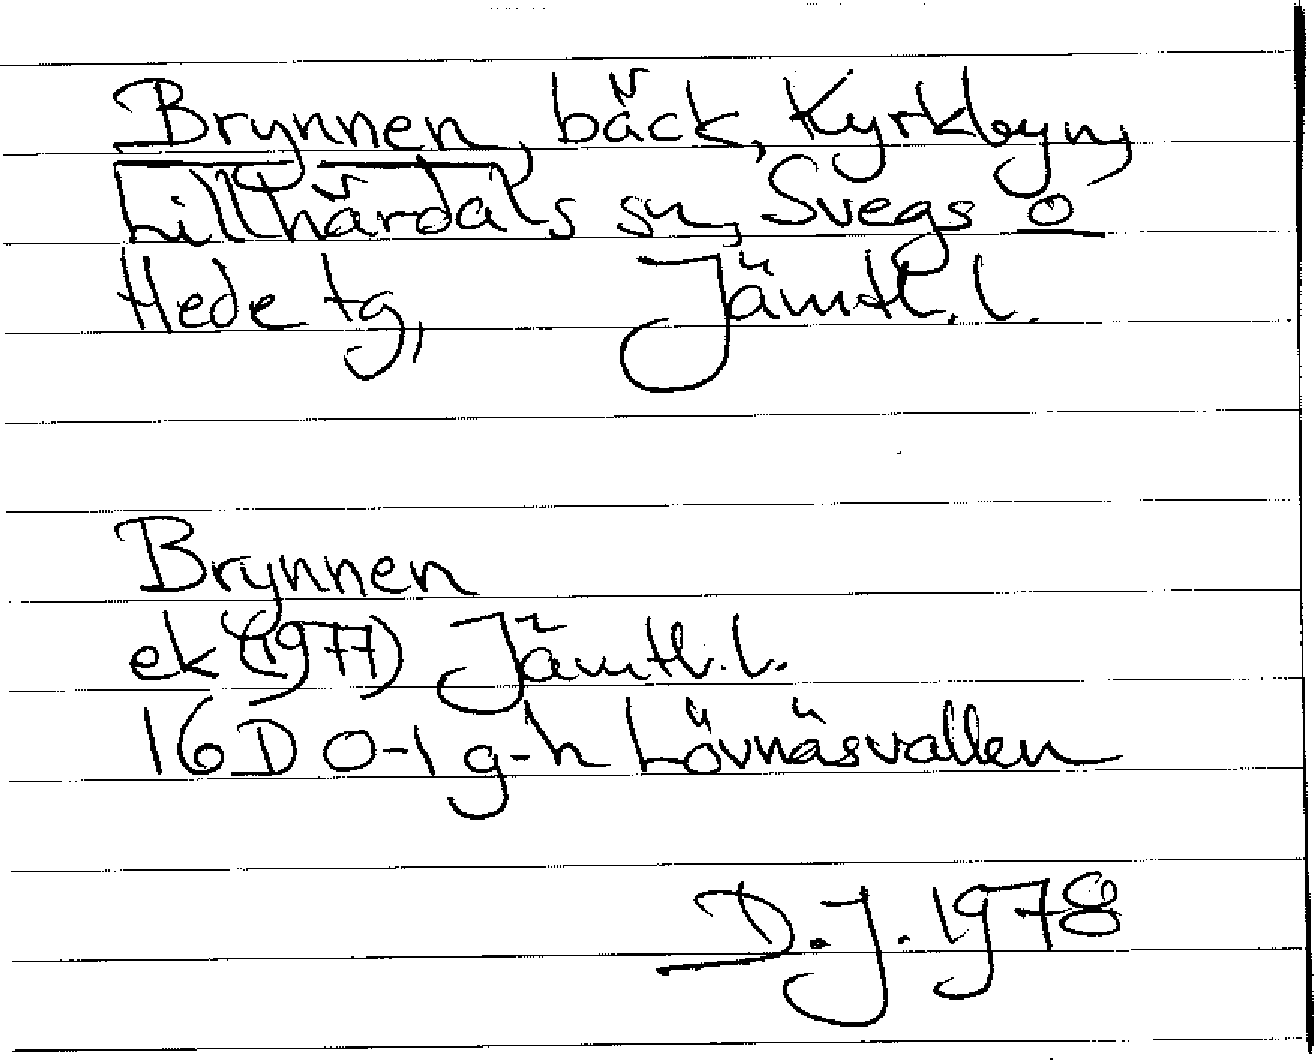 Brynnen, bäck, Kyrkbyn,
Lillhärdals sn, Svegs o
Hede tg, Jämtl. l.
Brynnen
ek (1977) Jämtl. l.
16D 0-1 g-h Lövnäsvallen
D.J. 1978